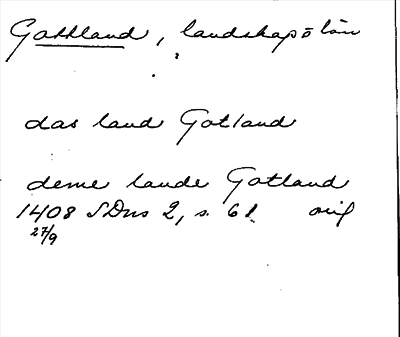 Gottland, landskap o län
das land Gotland
deme lande Gotland
1408 SDns 2, s. 61. orig
27/9